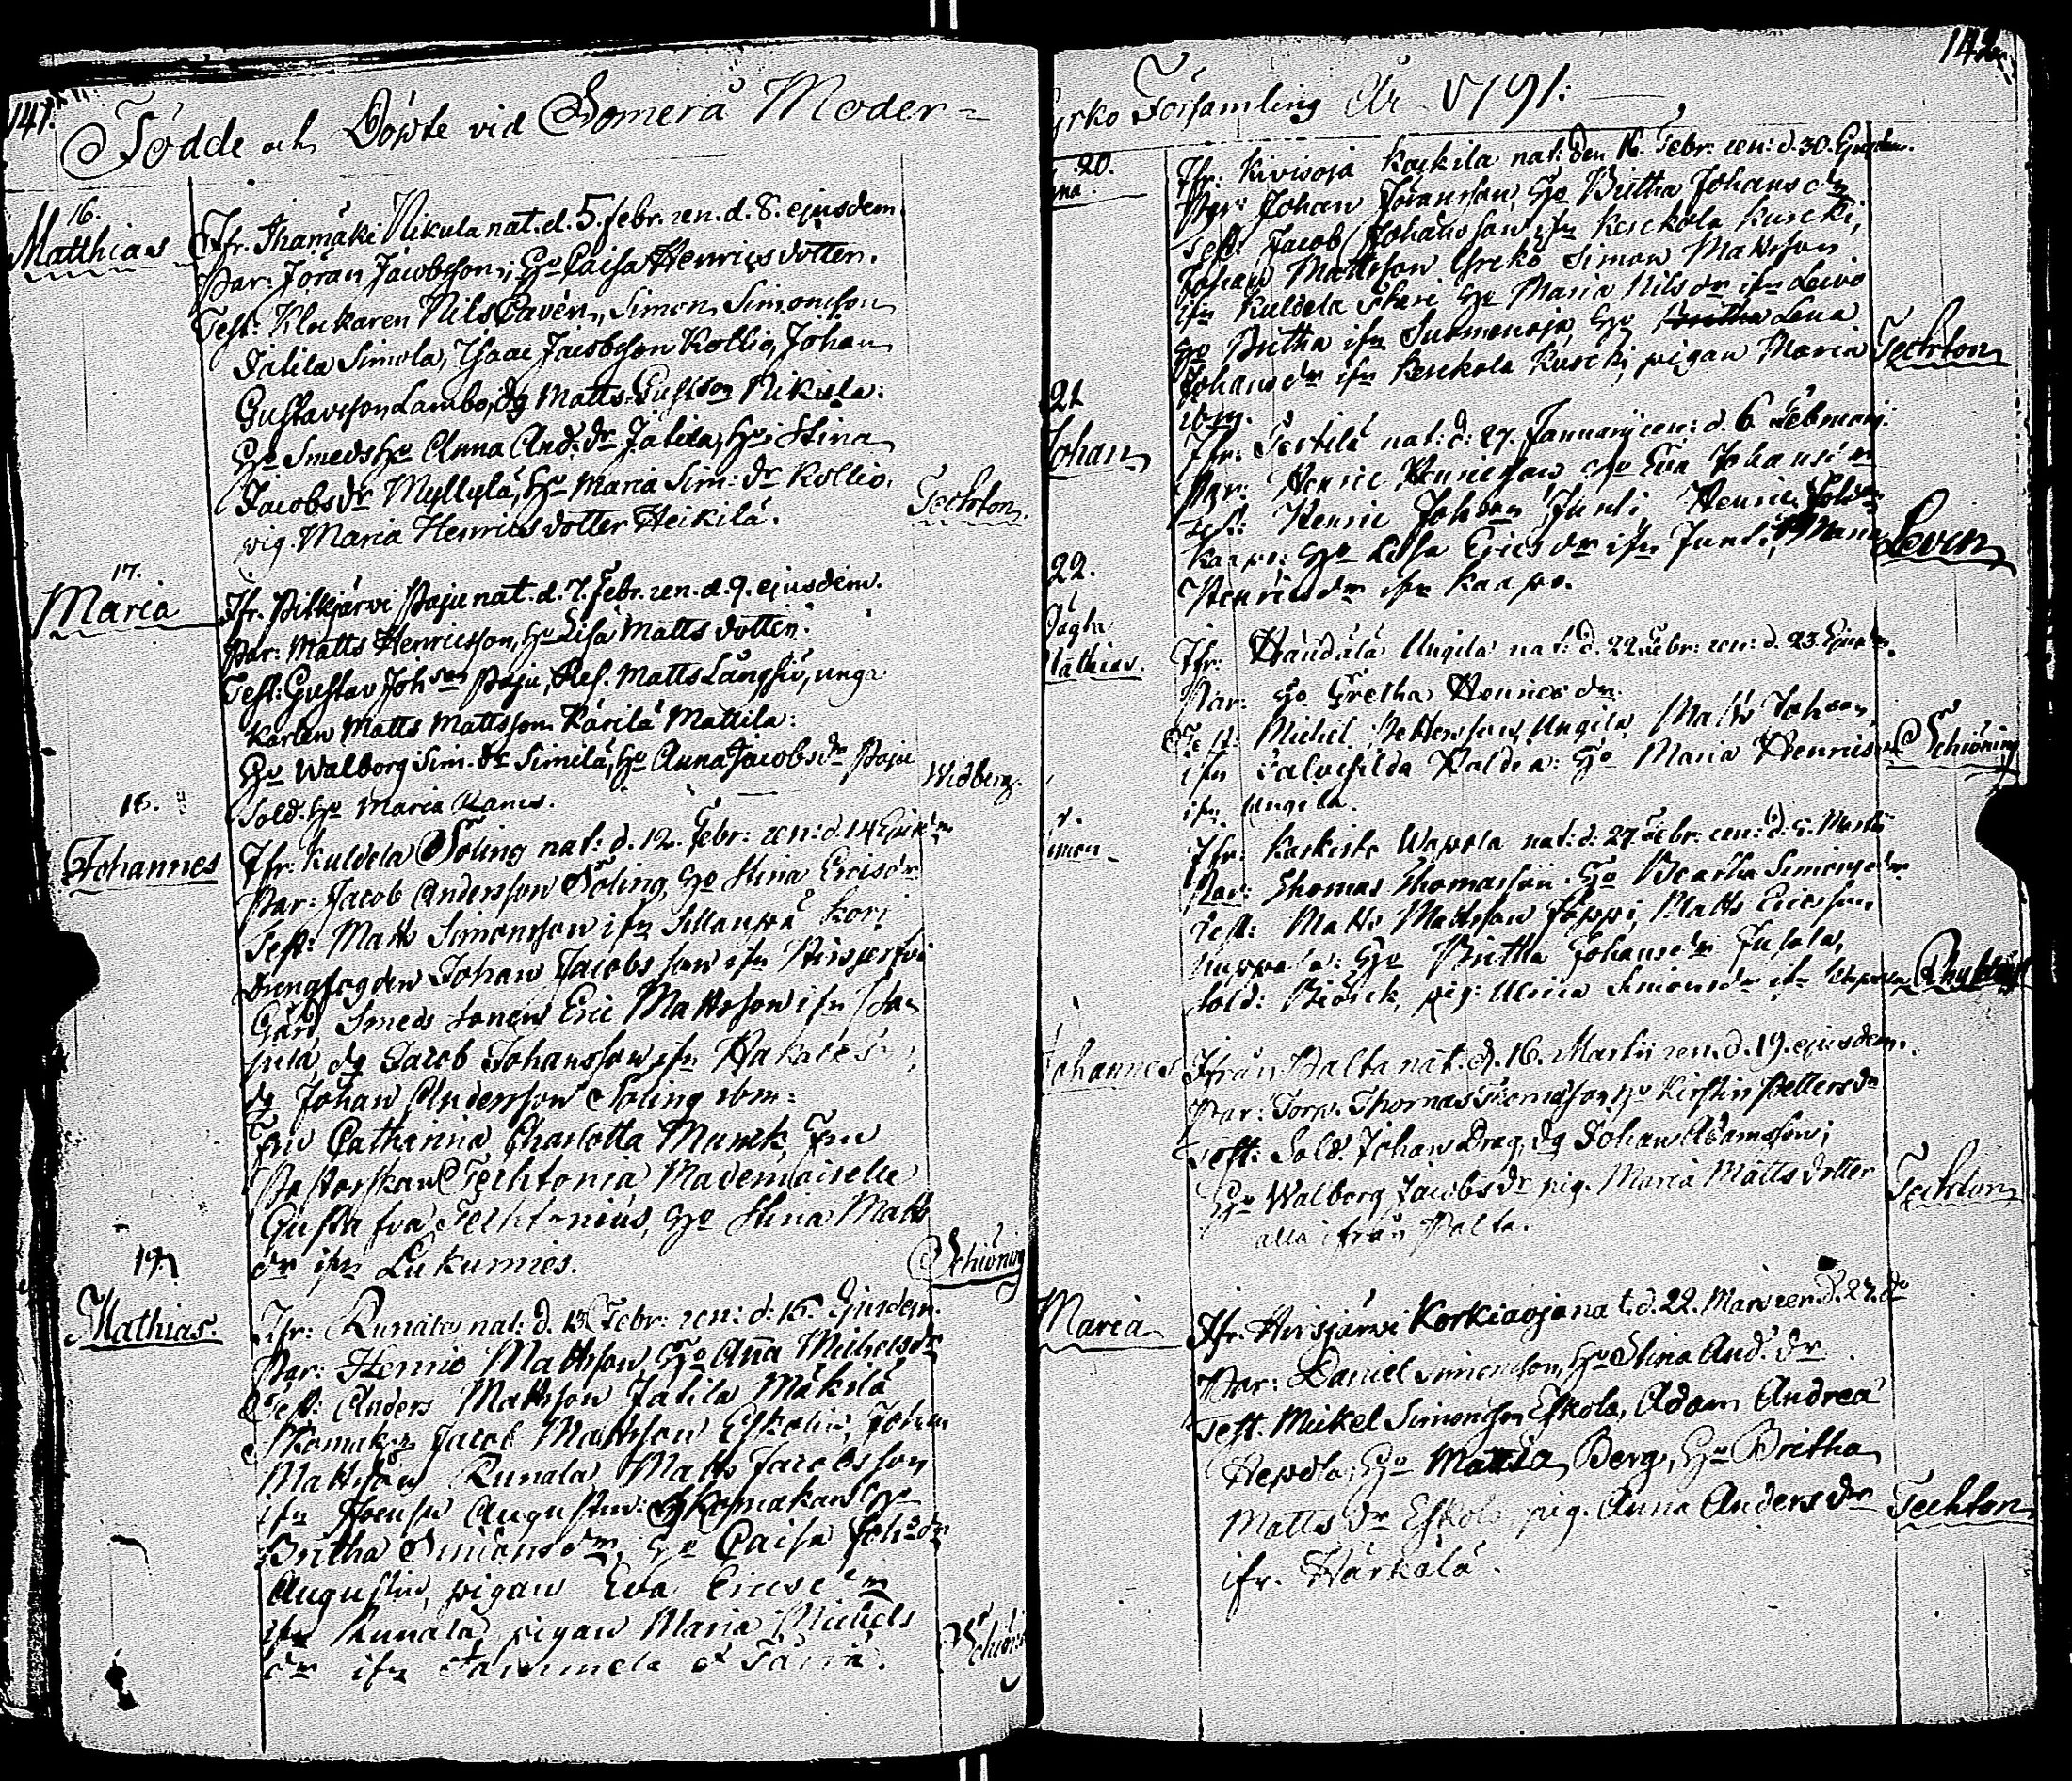 141.
Födde och Döpte vid Somerä Moder=
16.
Matthias
Ifr. Ihamäki Nikula nat. d. 5. febr. ren. d. 8. ejusdem.
Par: Jöran Jacobsson, Hu Caisa Henricsdotter.
Test: Klockaren Nils Cavén, Simon Simonsson
Jalila Simola, Isaac Jacobsson Kollio, Johan
Gustavsson Lambo, dg Matts Gustson Nikula:
Hu Smeds Hu Anna And. dr Jalila, Hu Stina
Jacobs dr Myllylä, Hu Maria Sim: dr Kollio.
pig. Maria Henricsdotter Heikilä.
Techton.
17.
Maria
Ifr. Pitkjärvi Paju nat. d. 7. Febr. ren. d. 9. ejusdem.
Par: Matts Henricsson, Hu Lisa Mattsdotter.
Test: Gustav Johson Paju, Ref. Matts Långsiö, unga
Karlen Matts Mattsson Kärilä Mattila:
Hu Walborg Sim. dr Similä, Hu Anna Jacobs dr Paju
Sold. Hu Maria Rams.
Widberg.
18.
Johannes
Ifr: Kuldela Söling nat: d. 12. Febr: ren: d. 14 Ejusdm
Par: Jacob Andersson Söling, Hu Stina Ericsdr
Test: Matts Simonsson ifn Sillanpä Kori
drengfogden Johan Jacobsson ifn Hirsjerfvi
Gård Smeds sonen Eric Mattsson ifn
dg Jacob Johansson ifn
dg Johan Andersson Söling ibm:
Fru Catharina Charlotta Munck, Fru
Pastorskan Techtonia Mademoiselle
Gusta Techtonius, Hu Stina Matts
dr ifn Lukumies.
Schiöning
19.
Mathias.
Ifr: Runala nat: d. 13. Febr: ren: d: 15. Ejusdem.
Par: Henric Mattsson, Hu Anna Michelsdr
Test: Anders Mattsson Jalila Mäkilä
Skomak: Jacob Mattsson Eskolin, Johan
Mattsson Runala Matts Jacobsson
ifn Joensu Augustin: Skomakars Hu
Britha Simonsdr, Hu Caisa Johsdr
Augustin, pigan Eva Ericsdr
ifn Runala, pigan Maria Michels
dr ifn Tammela
Schiöning
142.
yrko Församling År 1791:
20.
nna.
Ifr: Kivisoja Kackila nat: den 16. Febr: ren: d. 30. Ejusdem.
Par: Johan Jöransson, Hu Britha Johansdr
Test: Jacob Johansson ifn Kerckola Kurcki,
Johan Mattsson Simon Mattsson
ifn Kuldela Hu Maria Nilsdr ifn Leivo
Hu Britha ifn Suomenoja, Hu Lena
Johansdr ifn Kerckola Kurcki, pigan Maria
ibm.
Techton
21
Johan
Ifr: Pertilä nat: d: 27. Januarij ren: d. 6 Februarij.
Par: Henric Henricsson Hu Eva Johansdr
Test: Henric Johson Junti Henric Johson
Kaapo: Hu Lisa Ericsdr ifn Junti, Maria
Henricsdr ifn Kaapo.
Levin
22.
Oägta
Mathias.
Ifr: Händälä Ungila nat: d. 22. Febr: ren: d. 23. Ejusdem.
Par: Hu Gretha Henricsdr.
Test: Michel Pettersson, Ungila, Matts Johson
ifn Kaldia: Hu Maria Henricsdr
ifn Ungila.
Schiöning
imon.
Ifr: Kaskisto Wappola nat: d: 27. Febr: ren: d: 5. Martii
Par: Thomas Thomasson. Hu Beatha Simonsdr
Test: Matts Mattsson Jöppi, Matts Ericsson
Hu Britha Johansdr Jusola,
Sold: Biörck, pig: Ulrica Simonsdr ifn
ohannes
Ifrån Palta nat. d. 16. Martii ren. d. 19. ejusdem.
Par: Torp. Thomas Thomasson, Hu Kirstin Petters dr
Test: Sold. Johan Drag, dg Johan Adamsson;
Hu Walborg Jacobs dr pig. Maria Mattsdotter
alla ifrån Palta.
Techton
Maria
Ifr. Hirsjärvi Korkiaoja nat. d. 22. Mars ren. d. 27. do
Par: Daniel Simonsson, Hu Stina And. dr
Test. Mickel Simonsson Eskola, Adam Andrea
Hepola, Hu Berg, Hu Britha
Matts dr Eskola pig. Anna Anders dr
ifr. Härkälä.
Techton